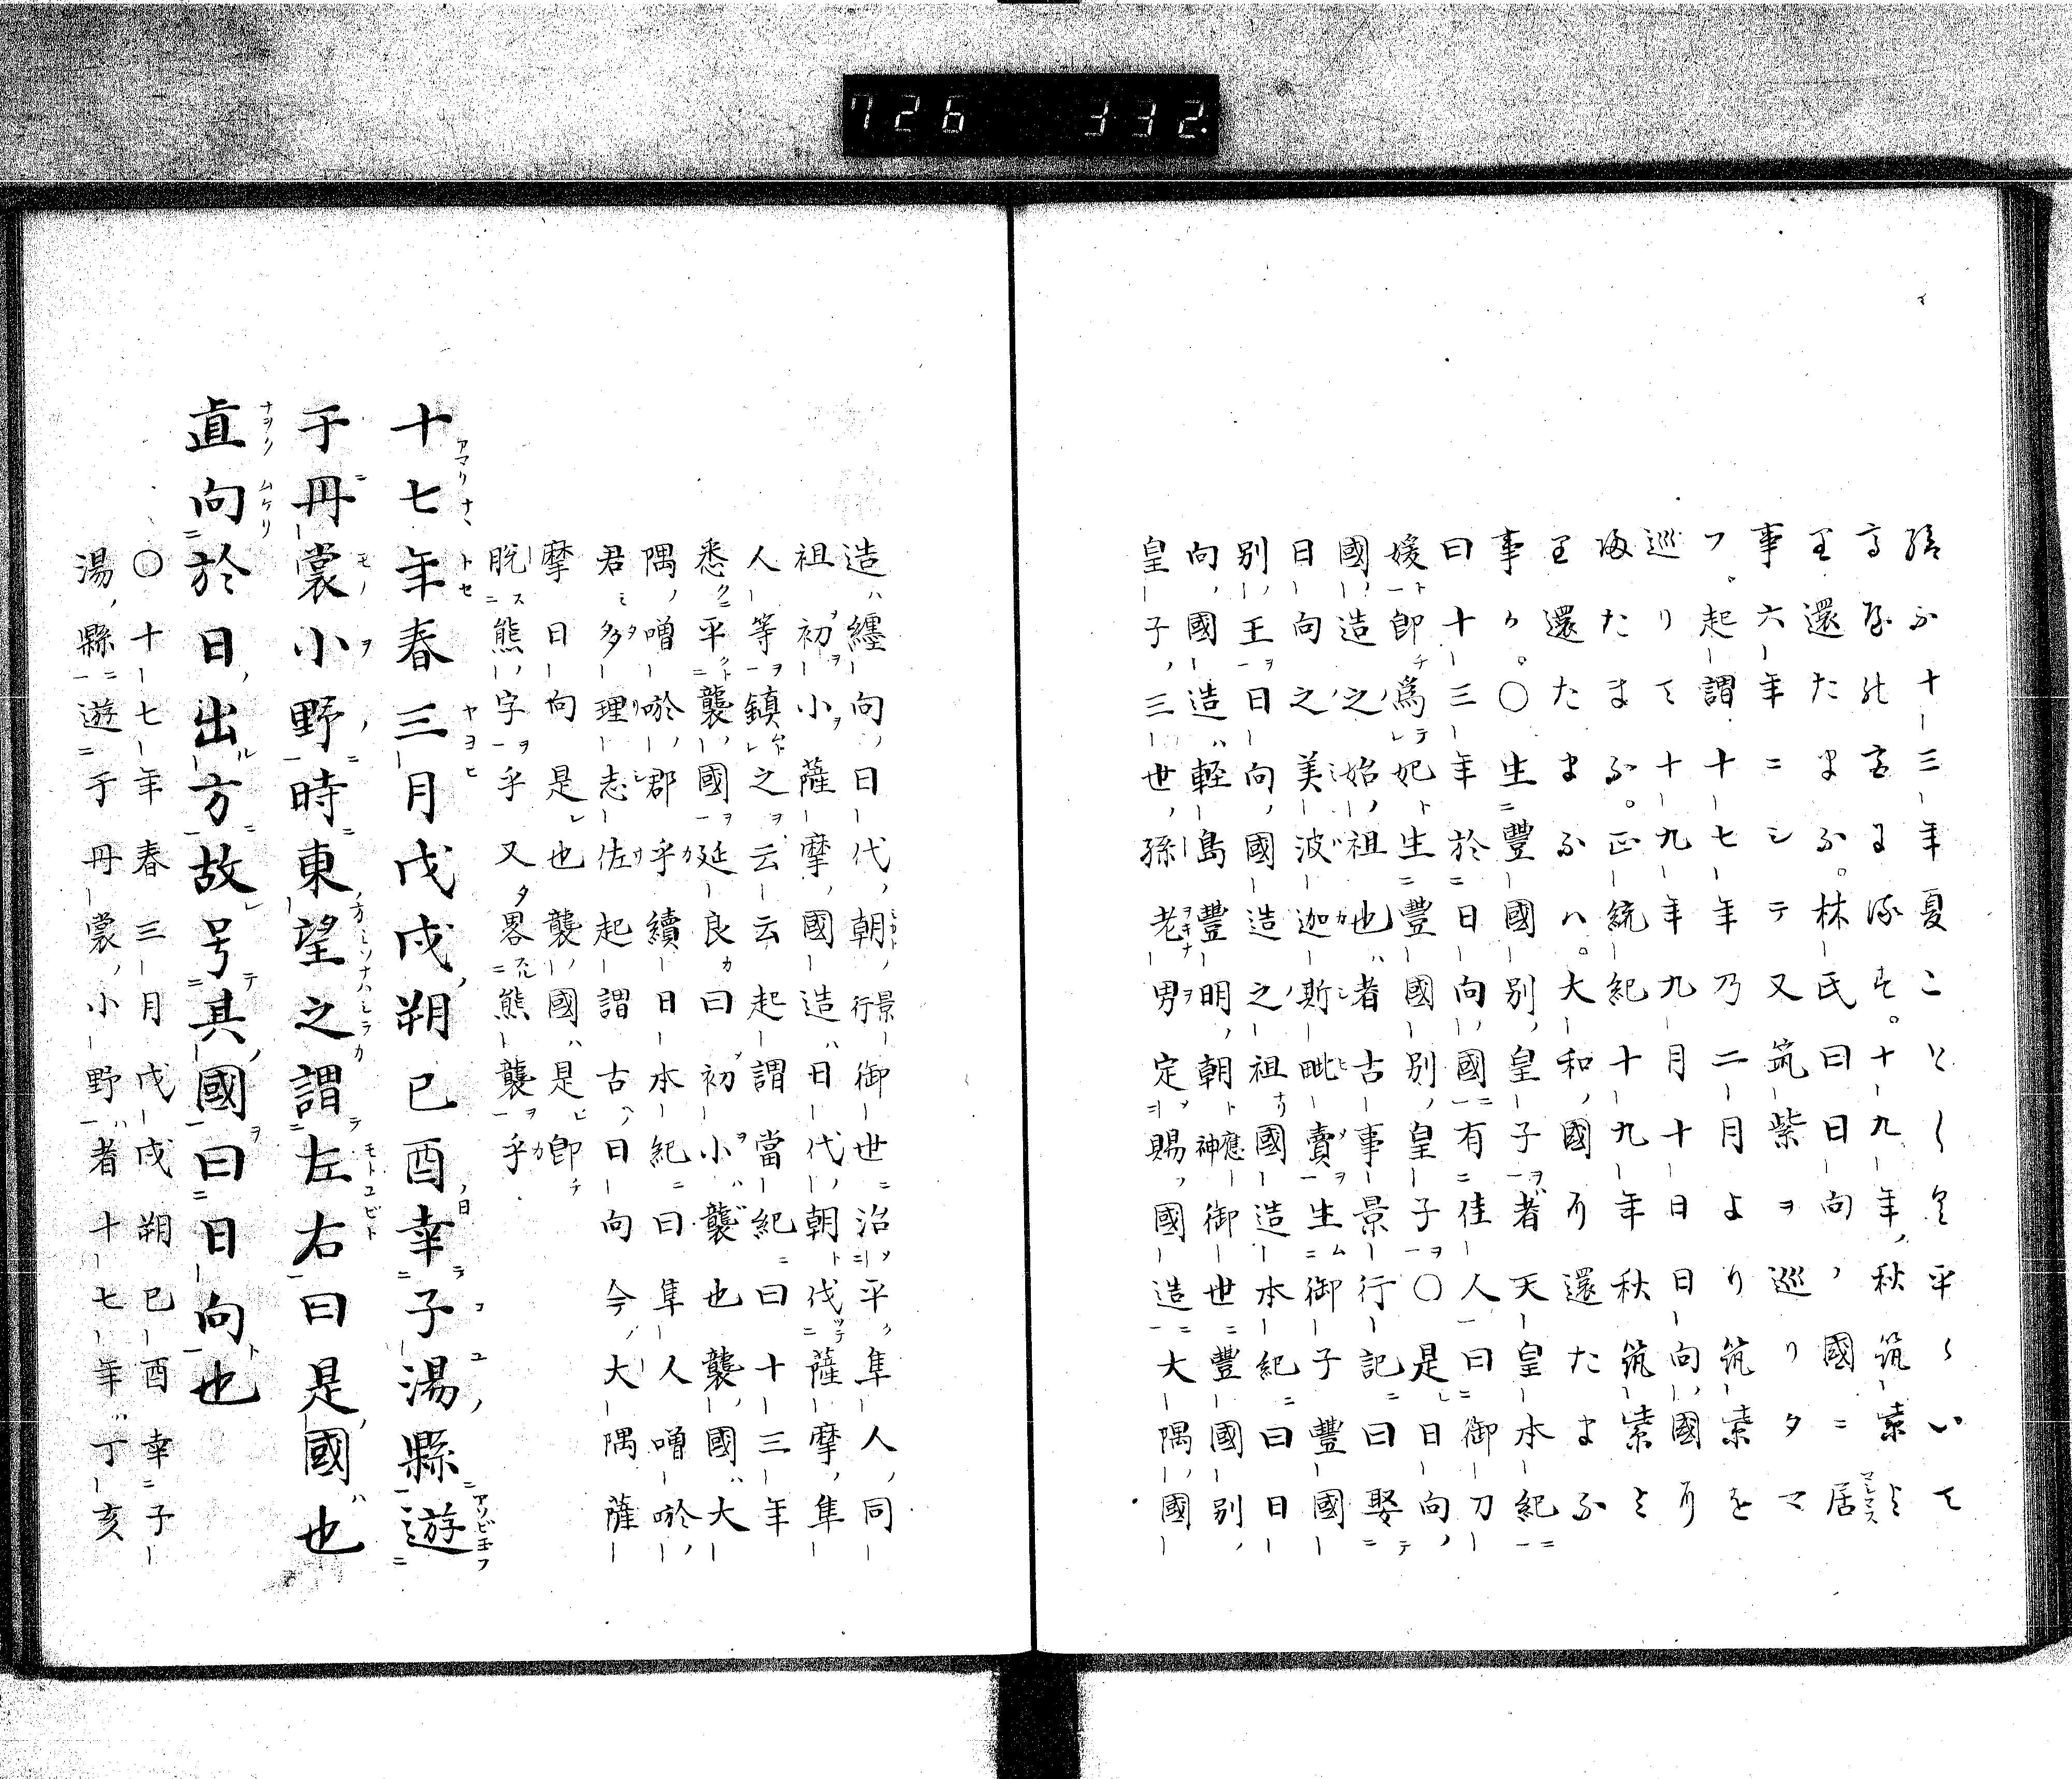 726 332.
十三年夏ことく平
十九年秋筑紫
還たまふ。林氏曰日向國ニ居マシマス
事六年ニシテ又筑紫ヲ巡リタマ
フ。起謂十七年乃二月より筑紫を
巡りて十九年九月十日日向國
海たまふ。正統紀十九年秋筑紫
還たまふハ。大和國還たまふ
事〇生豐國別皇子者天皇本紀
曰十三年於日向國有佳人曰御刀
媛即爲妃生豐國別皇子〇是日向
國造之始祖也者古事景行記曰娶
日向之美波迦斯毗賣生御子豐國
別王日向國造之祖國造本紀曰日
向國造輕島豐明朝應神御世豐國別
皇子三世孫老男定賜國造大隅國
造纒向日代朝景行御世治平隼人同
祖初小薩摩國造日代朝伐薩摩隼
人等鎮之云云起謂當紀曰十三年
悉平襲國延良曰初小襲也襲國大
隅噌唹郡乎續日本紀曰隼人噌唹
君多理志佐起謂古日向今大隅薩
摩日向是也襲國是即
脱熊字乎又畧熊襲乎
十七年春三月戊戌朔己酉幸子湯縣遊
于丹裳小野時東望之謂左右曰是國也
直向於日出方故号其國曰日向也
〇十七年春三月戊戌朔己酉幸子
湯縣遊于丹裳小野者十七年丁亥